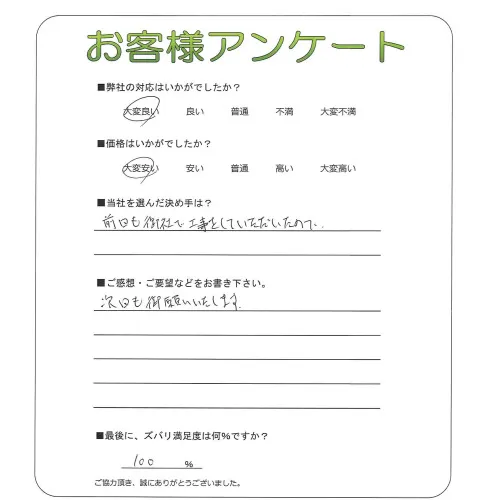 お客様アンケート
■弊社の対応はいかがでしたか？
大変良い 良い 普通 不満 大変不満
■価格はいかがでしたか？
大変安い 安い 普通 高い 大変高い
■当社を選んだ決め手は？
前回も御社で工事をしていただいたので、
■ご感想・ご要望などをお書き下さい。
次回も御願いいたします。
■最後に、ズバリ満足度は何%ですか？
100 %
ご協力頂き、誠にありがとうございました。